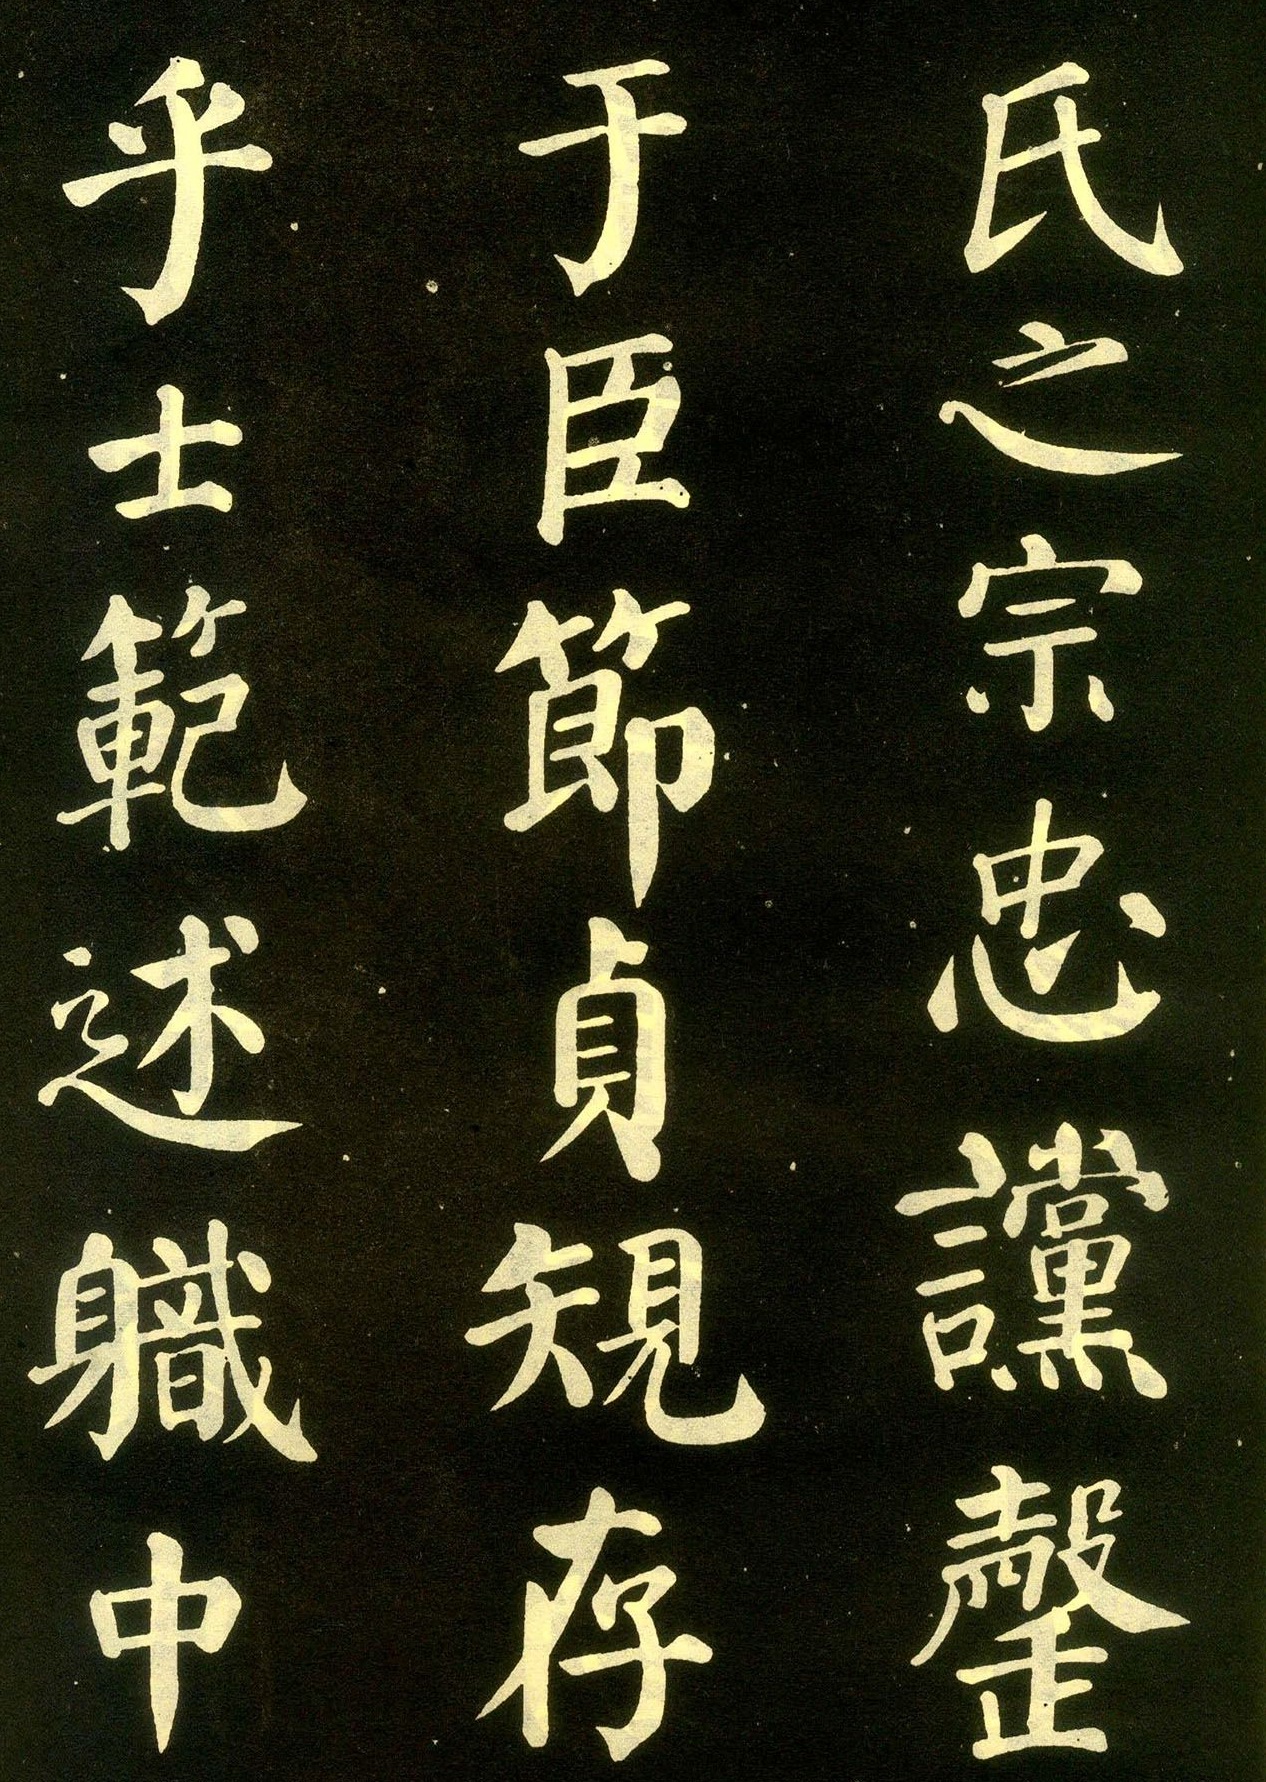 氏之宗忠讜罄
于臣節貞規存
乎士範述職中